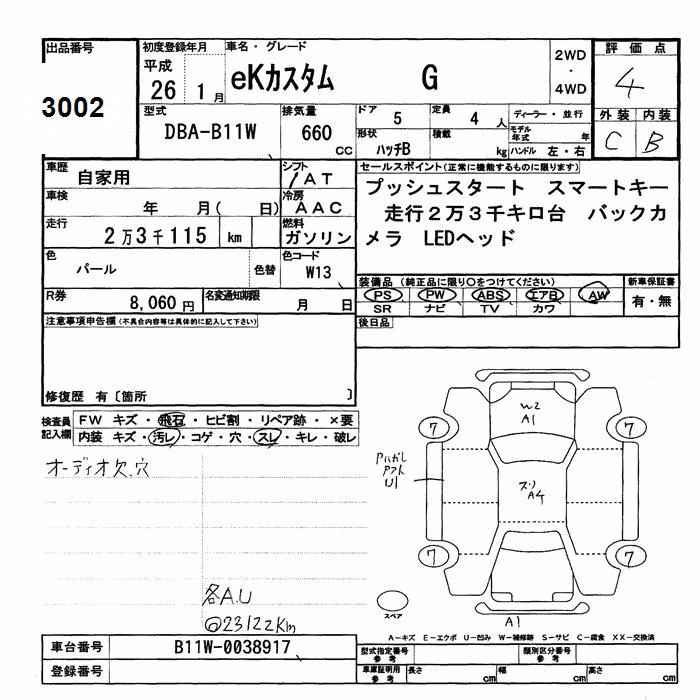 出品番号
3002
初度登録年月
平成
26 1月
車名・グレード
eKカスタム G
2WD
・
4WD
評価点
4
外装 内装
C B
型式
DBA-B11W
排気量
660
CC
ドア
5
定員
4人
ディーラー・並行
形状
ハッチB
積載
kg
モデル年式 年
ハンドル 左・右
車歴
自家用
シフト
/AT
車検
年 月( 日)
冷房
AAC
走行
2万3千115 km
燃料
ガソリン
色
パール
色替
色コード
W13
R券
8,060円
名変通知期限
月 日
セールスポイント(正常に機能するものに限ります)
プッシュスタート スマートキー
走行2万3千キロ台 バックカ
メラ LEDヘッド
装備品 (純正品に限り○をつけてください)
PS PW ABS エアB AW
SR ナビ TV カワ
新車保証書
有・無
後日品
注意事項申告欄(不具合内容等は具体的に記入して下さい)
修復歴 有〔箇所 〕
検査員
記入欄
FW キズ・飛石・ヒビ割・リペア跡・×要
内装 キズ・汚レ・コゲ・穴・スレ・キレ・破レ
オーディオ欠、穴
各A.U
@23122Km
W2
A1
7
7
Pハガレ
アクト
U1
スリ
A4
7
7
スペア
A1
A-キズ E-エクボ U-凹み W-補修跡 S-サビ C-腐食 XX-交換済
車台番号
B11W-0038917
登録番号
型式指定番号
参考
類別区分番号
参考
車庫証明用
参考
長さ cm 幅 cm 高さ cm